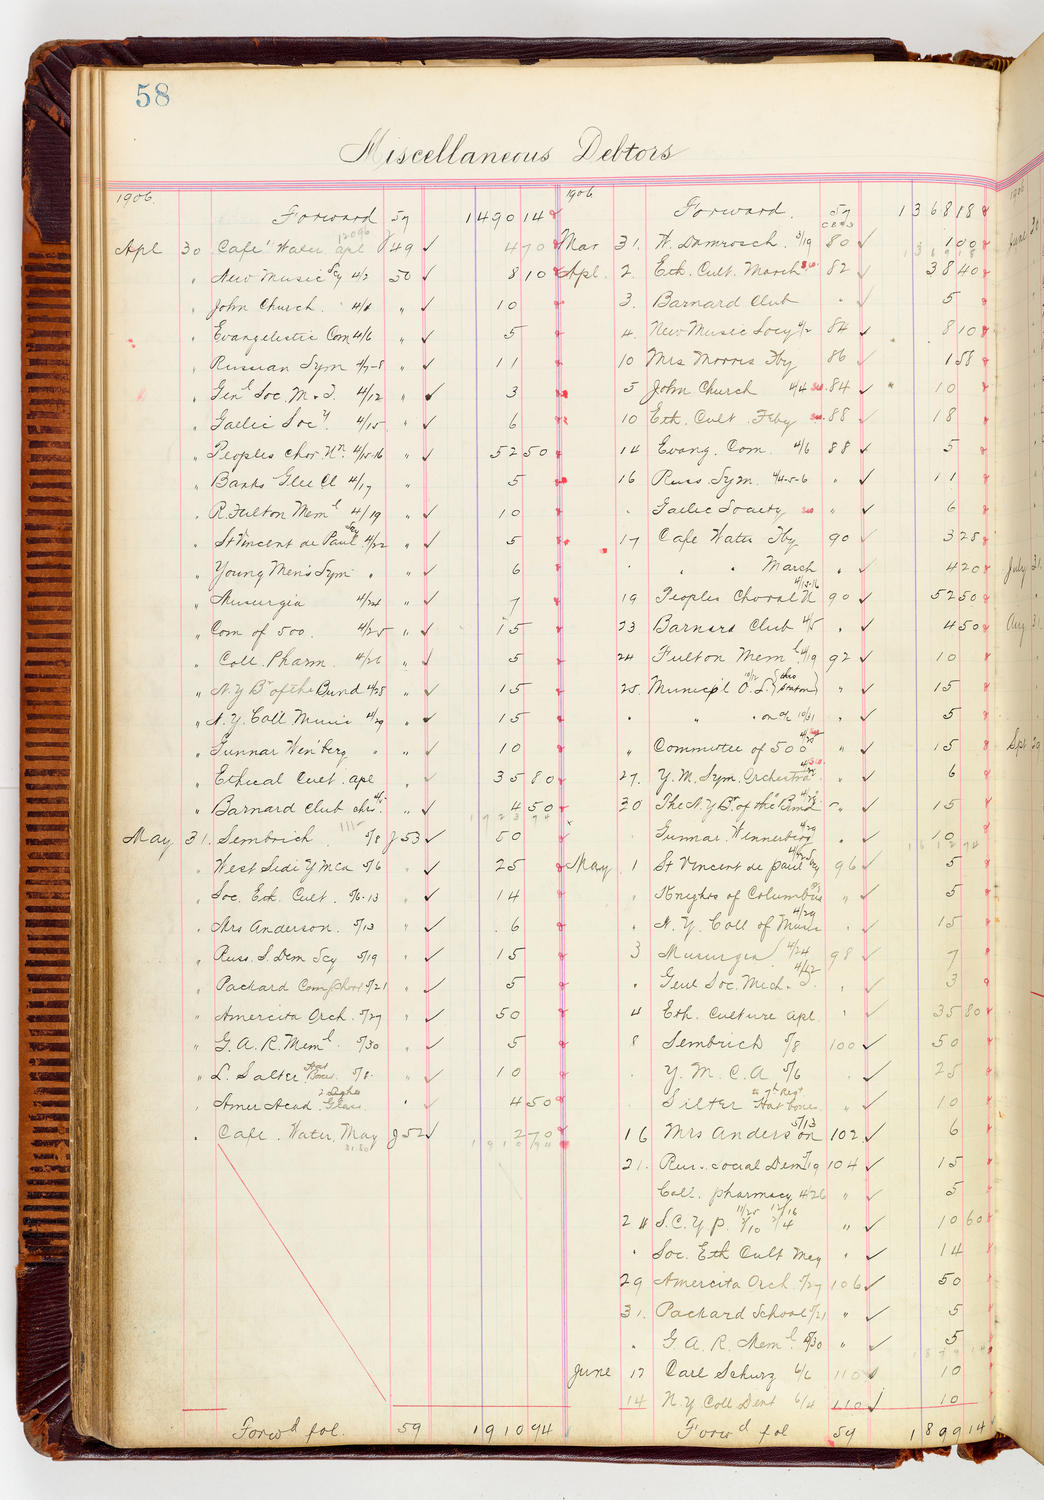 58
Miscellaneous Debtors
1906.
Forward 57 1490 14
Apl 30 Cafe' Water apl J 49 ✓ 4 70
" New Music Scy 4/2 50 ✓ 8 10
" John Church 4/6 " ✓ 10
" Evangelistic Com 4/6 " ✓ 5
" Russian Sym 4/7-8 " ✓ 11
" Gen'l Soc. M & T. 4/12 " ✓ 3
" Gaelic Socy 4/15 " ✓ 6
" Peoples Chor. Un. 4/15-16 " ✓ 52 50
" Banks Glee Cl 4/17 " 5
" R. Fulton Meml 4/19 " ✓ 10
" St Vincent de Paul Scy 4/22 " ✓ 5
" Young Men's Sym " " ✓ 6
" Musurgia 4/24 " ✓ 7
" Com of 500. 4/25 " ✓ 15
" Coll. Pharm. 4/26 " ✓ 5
" N. Y Br of the Bund 4/28 " ✓ 15
" N. Y. Coll Music 4/29 " ✓ 15
" Gunnar Wen'berg " " ✓ 10
" Ethical Cult. apl " ✓ 35 80
" Barnard Club " ✓ 4 50
1723 94
May 31. Sembrich 5/8 J 53 ✓ 50
" West Side YMCA 5/6 " ✓ 25
" Soc. Eth. Cult. 5/6-13 " ✓ 14
" Mrs Anderson. 5/13 " ✓ 6
" Russ. S. Dem Scy 5/19 " ✓ 15
" Packard Com School 5/21 " ✓ 5
" Amercita Orch. 5/27 " ✓ 50
" G. A. R. Meml. 5/30 " ✓ 5
" L. Salter Hat Boxes 5/8 " ✓ 10
" Amer Acad. 2 Lights Glass " ✓ 4 50
" Cafe. Water, May J 52 ✓ 2 70
1910 94
Forwd fol. 59 1910 94
1906
Forward. 57 1368 18
Mar 31. W. Damrosch. 3/19 80 ✓ 100
Apl. 2. Eth. Cult. March 82 ✓ 38 40
3. Barnard Club " ✓ 5
4. New Music Socy 4/2 84 ✓ 8 10
10 Mrs Morris Fby 86 ✓ 1 58
5 John Church 4/4 84 ✓ 10
10 Eth. Cult Feby 88 ✓ 18
14 Evang. Com. 4/6 88 ✓ 5
16 Russ. Sym. 4/4-5-6 " ✓ 11
" Gaelic Society " ✓ 6
17 Cafe Water Fby 90 ✓ 3 25
" " " March " ✓ 4 20
19 Peoples Choral U 4/15-16 90 ✓ 52 50
23 Barnard Club 4/5 " ✓ 4 50
24 Fulton Meml. 4/19 92 ✓ 10
25. Municip'l O. L. " ✓ 15
" " " 10/31 " ✓ 5
" Committee of 500 4/25 " ✓ 15
27. Y. M. Sym. Orchestra " ✓ 6
30 The N. Y Br. of the Bund 4/28 " ✓ 15
Gunnar Wennerberg 4/29 " ✓ 10
May 1 St Vincent de Paul Scy 4/22 96 ✓ 5
" Knights of Columbus " ✓ 5
" N. Y. Coll of Music 4/29 " ✓ 15
3 Musurgia 4/24 98 ✓ 7
" Genl Soc. Mech. & T. 4/12 " ✓ 3
4 Eth. Culture apl. " ✓ 35 80
8 Sembrich 5/8 100 ✓ 50
" Y. M. C. A 5/6 " ✓ 25
" Hat boxes " ✓ 10
16 Mrs Anderson 5/13 102 ✓ 6
21. Rus. Social Dem 5/19 104 ✓ 15
Coll. pharmacy 4/26 " ✓ 5
2 " S. C. Y P. 11/25 12/16 " ✓ 10 60
" Soc. Eth Cult May " ✓ 14
29 Amercita Orch 5/27 106 ✓ 50
31. Packard School 5/21 " ✓ 5
" G. A. R. Meml. 5/30 " ✓ 5
June 12 Carl Schurz 6/6 110 ✓ 10
14 N. Y Coll Dent 6/4 110 ✓ 10
Forwd fol 59 1899 14
June 30
July 31
Aug 31
Spt 29